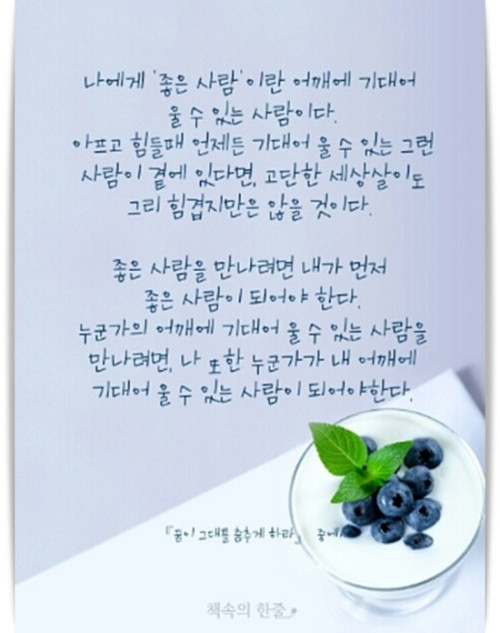 나에게 '좋은 사람'이란 어깨에 기대어
울 수 있는 사람이다.
아프고 힘들때 언제든 기대어 울 수 있는 그런
사람이 곁에 있다면, 고단한 세상살이도
그리 힘겹지만은 않을 것이다.
좋은 사람을 만나려면 내가 먼저
좋은 사람이 되어야 한다.
누군가의 어깨에 기대어 울 수 있는 사람을
만나려면, 나 또한 누군가가 내 어깨에
기대어 울 수 있는 사람이 되어야한다.
『꿈이 그대를 춤추게 하라』 중에서
책속의 한줄